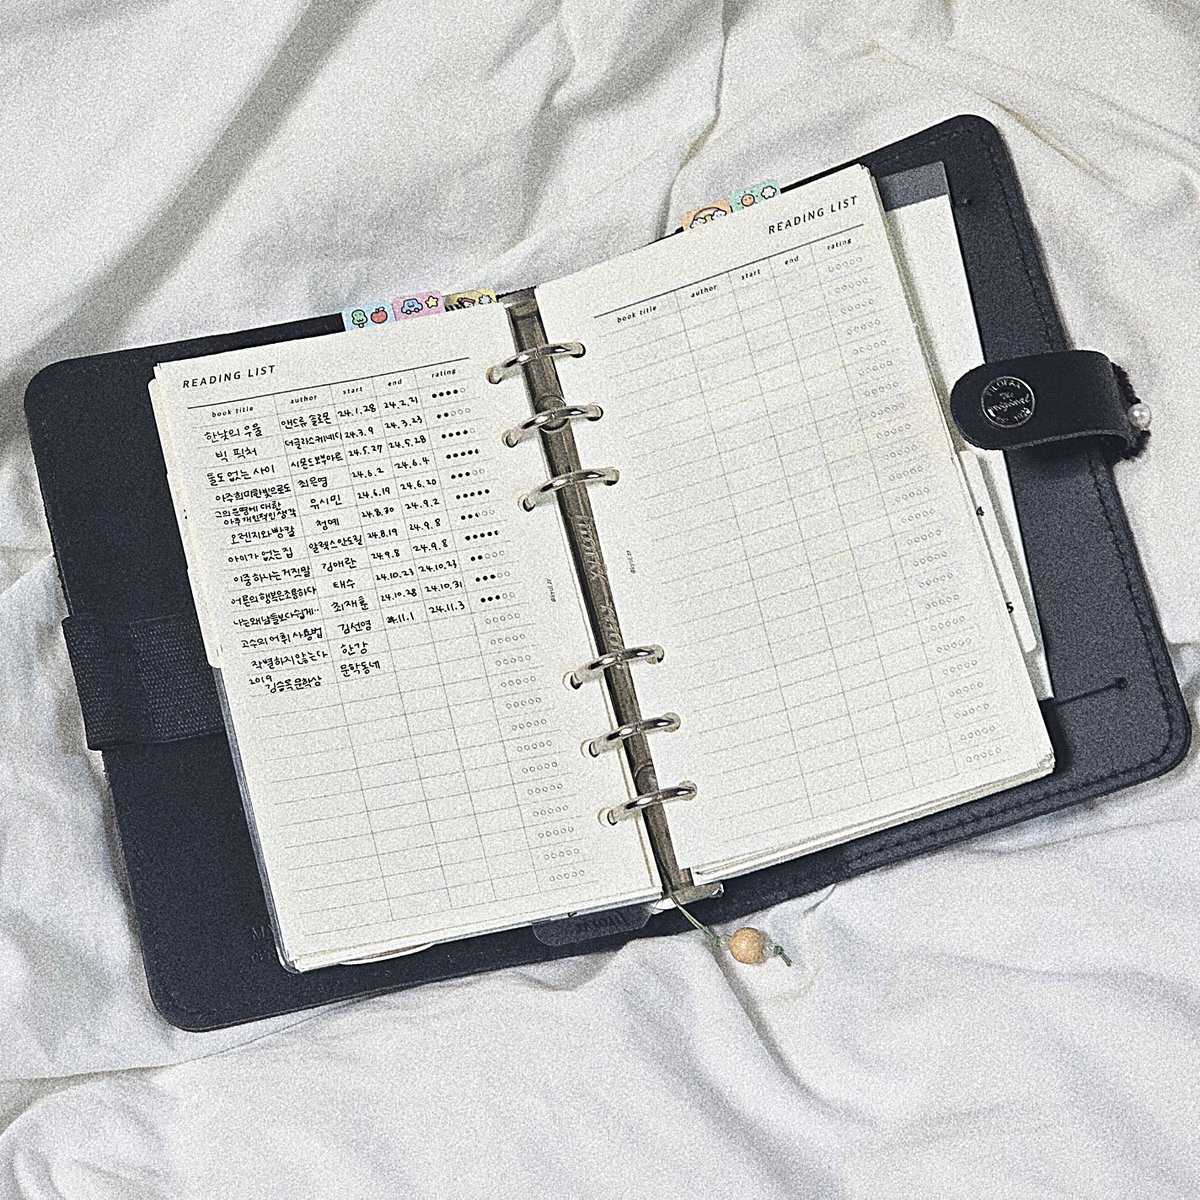 READING LIST
book title author start end rating
한낮의 우울 앤드류 솔로몬 24.1.28 24.2.21
빅 픽처 더글라스케네디 24.3.9 24.3.23
둘도 없는 사이 시몬드보부아르 24.5.27 24.5.28
아주희미한빛으로도 최은영 24.6.2 24.6.4
그의운명에 대한
아주개인적인생각 유시민 24.6.19 24.6.20
오렌지와 빵칼 청예 24.8.30 24.9.2
아이가 없는 집 알렉스안도릴 24.8.19 24.9.8
이중 하나는 거짓말 김애란 24.9.8 24.9.8
어른의 행복은조용하다 태수 24.10.23 24.10.23
나는왜남들보다쉽게.. 최재훈 24.10.28 24.10.31
고수의 어휘 사용법 김선영 24.11.1 24.11.3
작별하지 않는다 한강
2019
김승옥문학상 문학동네
READING LIST
book title author start end rating
FILOFAX